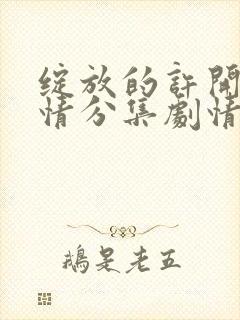 綻放的許開
情分集劇情
鵝是老五